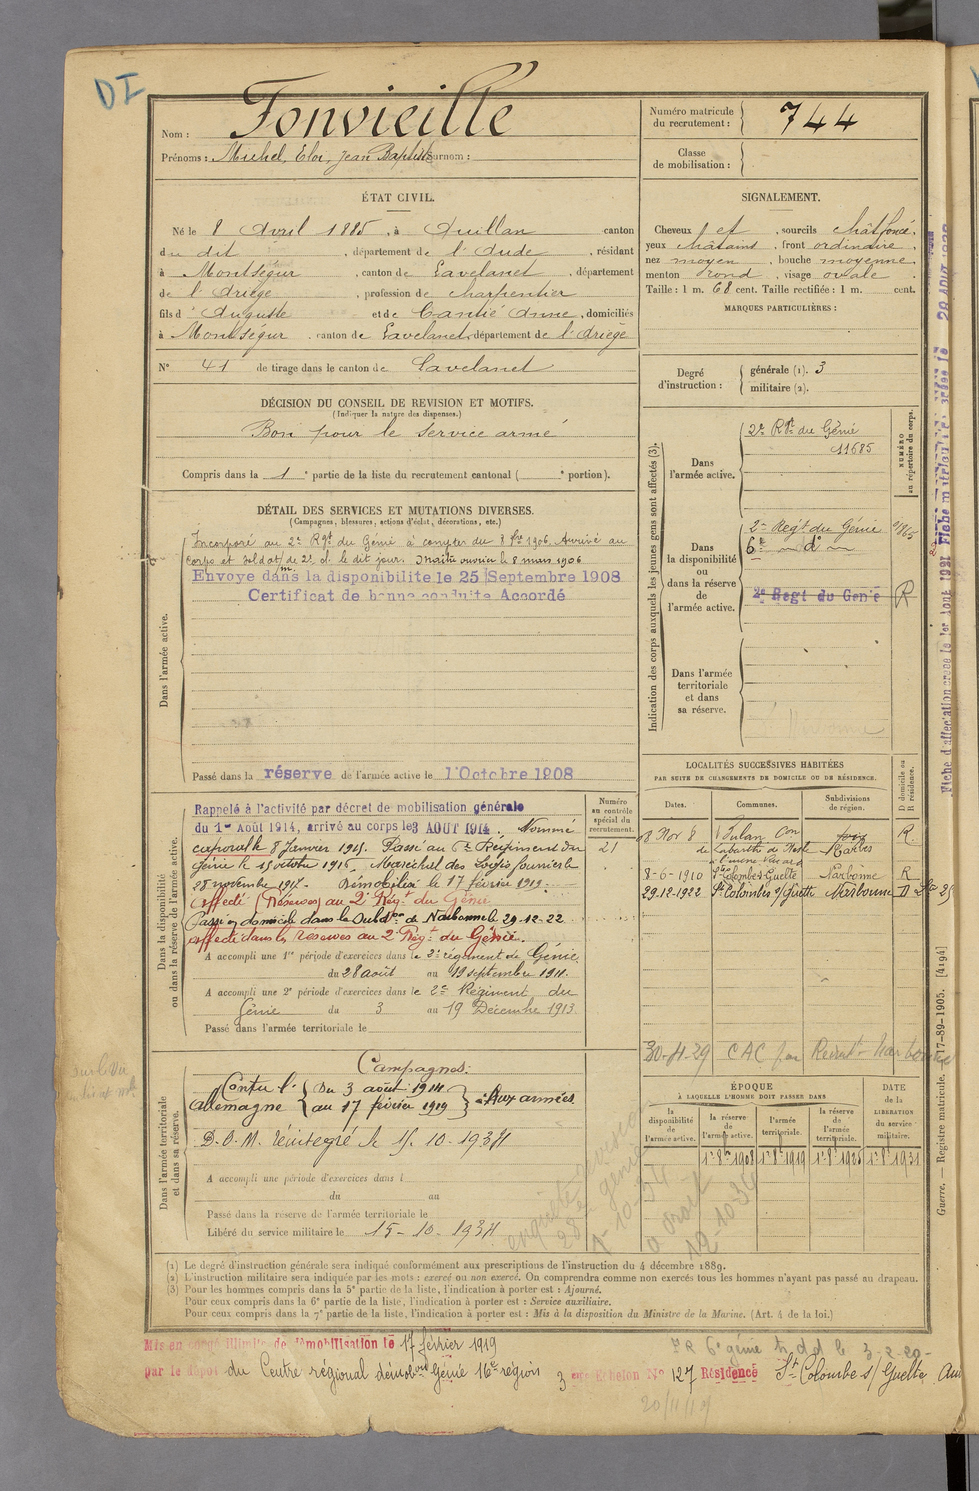 DI
Nom : Fonvieille
Prénoms : Michel, Eloi, Jean Baptiste Surnom :
Numéro matricule du recrutement : 744
Classe de mobilisation :
ÉTAT CIVIL.
Né le 8 Avril 1885, à Quillan canton
du dit, département de l'Aude, résidant
à Montségur, canton de Lavelanet, département
de l'Ariège, profession de charpentier
fils d'Auguste et de Cantié Anne, domiciliés
à Montségur, canton de Lavelanet, département de l'Ariège
N° 41 de tirage dans le canton de Lavelanet
SIGNALEMENT.
Cheveux et, sourcils chât foncé,
yeux châtains, front ordinaire,
nez moyen, bouche moyenne,
menton rond, visage ovale.
Taille : 1 m. 68 cent. Taille rectifiée : 1 m. cent.
MARQUES PARTICULIÈRES :
Degré d'instruction : générale (1). 3
militaire (2).
DÉCISION DU CONSEIL DE REVISION ET MOTIFS.
(Indiquer la nature des dispenses.)
Bon pour le service armé
Compris dans la 1e partie de la liste du recrutement cantonal ( e portion).
DÉTAIL DES SERVICES ET MUTATIONS DIVERSES.
(Campagnes, blessures, actions d'éclat, décorations, etc.)
Dans l'armée active.
Incorporé au 2e Rgt du Génie à compter du 8 1906. Arrivé au
corps et soldat de 2e cl. le dit jour. Maître ouvrier le 8 mars 1906
Envoyé dans la disponibilité le 25 Septembre 1908
Certificat de bonne conduite Accordé
Passé dans la réserve de l'armée active le 1 Octobre 1908
Indication des corps auxquels les jeunes gens sont affectés (3).
NUMÉRO au répertoire du corps.
Dans l'armée active.
2e Rgt du Génie
11685
Dans la disponibilité ou dans la réserve de l'armée active.
2e Regt du Génie
6e d°
2e Regt du Genie R
Dans l'armée territoriale et dans sa réserve.
LOCALITÉS SUCCESSIVES HABITÉES
PAR SUITE DE CHANGEMENTS DE DOMICILE OU DE RÉSIDENCE.
Dates. Communes. Subdivisions de région. D domicile ou R résidence.
8-6-1910 Ste Colombe s Guette Narbonne R
29.12.1922 St Colombe s/ Guette Narbonne D
30-11-29 CAC
Dans la disponibilité ou dans la réserve de l'armée active.
Numéro au contrôle spécial du recrutement.
21
Rappelé à l'activité par décret de mobilisation générale
du 1er Août 1914, arrivé au corps le 3 AOUT 1914. Nommé
caporal le 8 Janvier 1915. Passé au 6e Régiment du
Génie le 15 octobre 1916. Maréchal des Logis fourrier le
28 novembre 1917. Démobilisé le 17 février 1919.
Affecté (Réserves) au 2e Régt du Génie
Passé en domicile dans la Subdon de Narbonne le 29-12-22
Affecté dans les réserves au 2e Régt du Génie.
A accompli une 1re période d'exercices dans le 2e régiment de Génie
du 28 août au 19 septembre 1911.
A accompli une 2e période d'exercices dans le 2e Régiment du
Génie du 3 au 19 Décembre 1913.
Passé dans l'armée territoriale le
Dans l'armée territoriale et dans sa réserve.
Campagnes:
Contre l'Allemagne { Du 3 août 1914 au 17 février 1919 } Aux armées
D.O.M. réintégré le 15.10.1934
A accompli une période d'exercices dans l
du au
Passé dans la réserve de l'armée territoriale le
Libéré du service militaire le 15-10-1934
ÉPOQUE
À LAQUELLE L'HOMME DOIT PASSER DANS
la disponibilité de l'armée active. la réserve de l'armée active. l'armée territoriale. la réserve de l'armée territoriale.
DATE de la LIBÉRATION du service militaire.
1 8bre 1908 1 8bre 1919 1 8bre 1925 1 8bre 1931
(1) Le degré d'instruction générale sera indiqué conformément aux prescriptions de l'instruction du 4 décembre 1889.
(2) L'instruction militaire sera indiquée par les mots : exercé ou non exercé. On comprendra comme non exercés tous les hommes n'ayant pas passé au drapeau.
(3) Pour les hommes compris dans la 5e partie de la liste, l'indication à porter est : Ajourné.
Pour ceux compris dans la 6e partie de la liste, l'indication à porter est : Service auxiliaire.
Pour ceux compris dans la 7e partie de la liste, l'indication à porter est : Mis à la disposition du Ministre de la Marine. (Art. 4 de la loi.)
Mis en congé illimité de démobilisation le 17 février 1919
par le dépôt du Centre régional démobon Génie 16e région 3 eme Echelon No 127 Résidence St Colombe s/ Guette Aude
Guerre. — Registre matricule. — 17-89-1905. [4194]